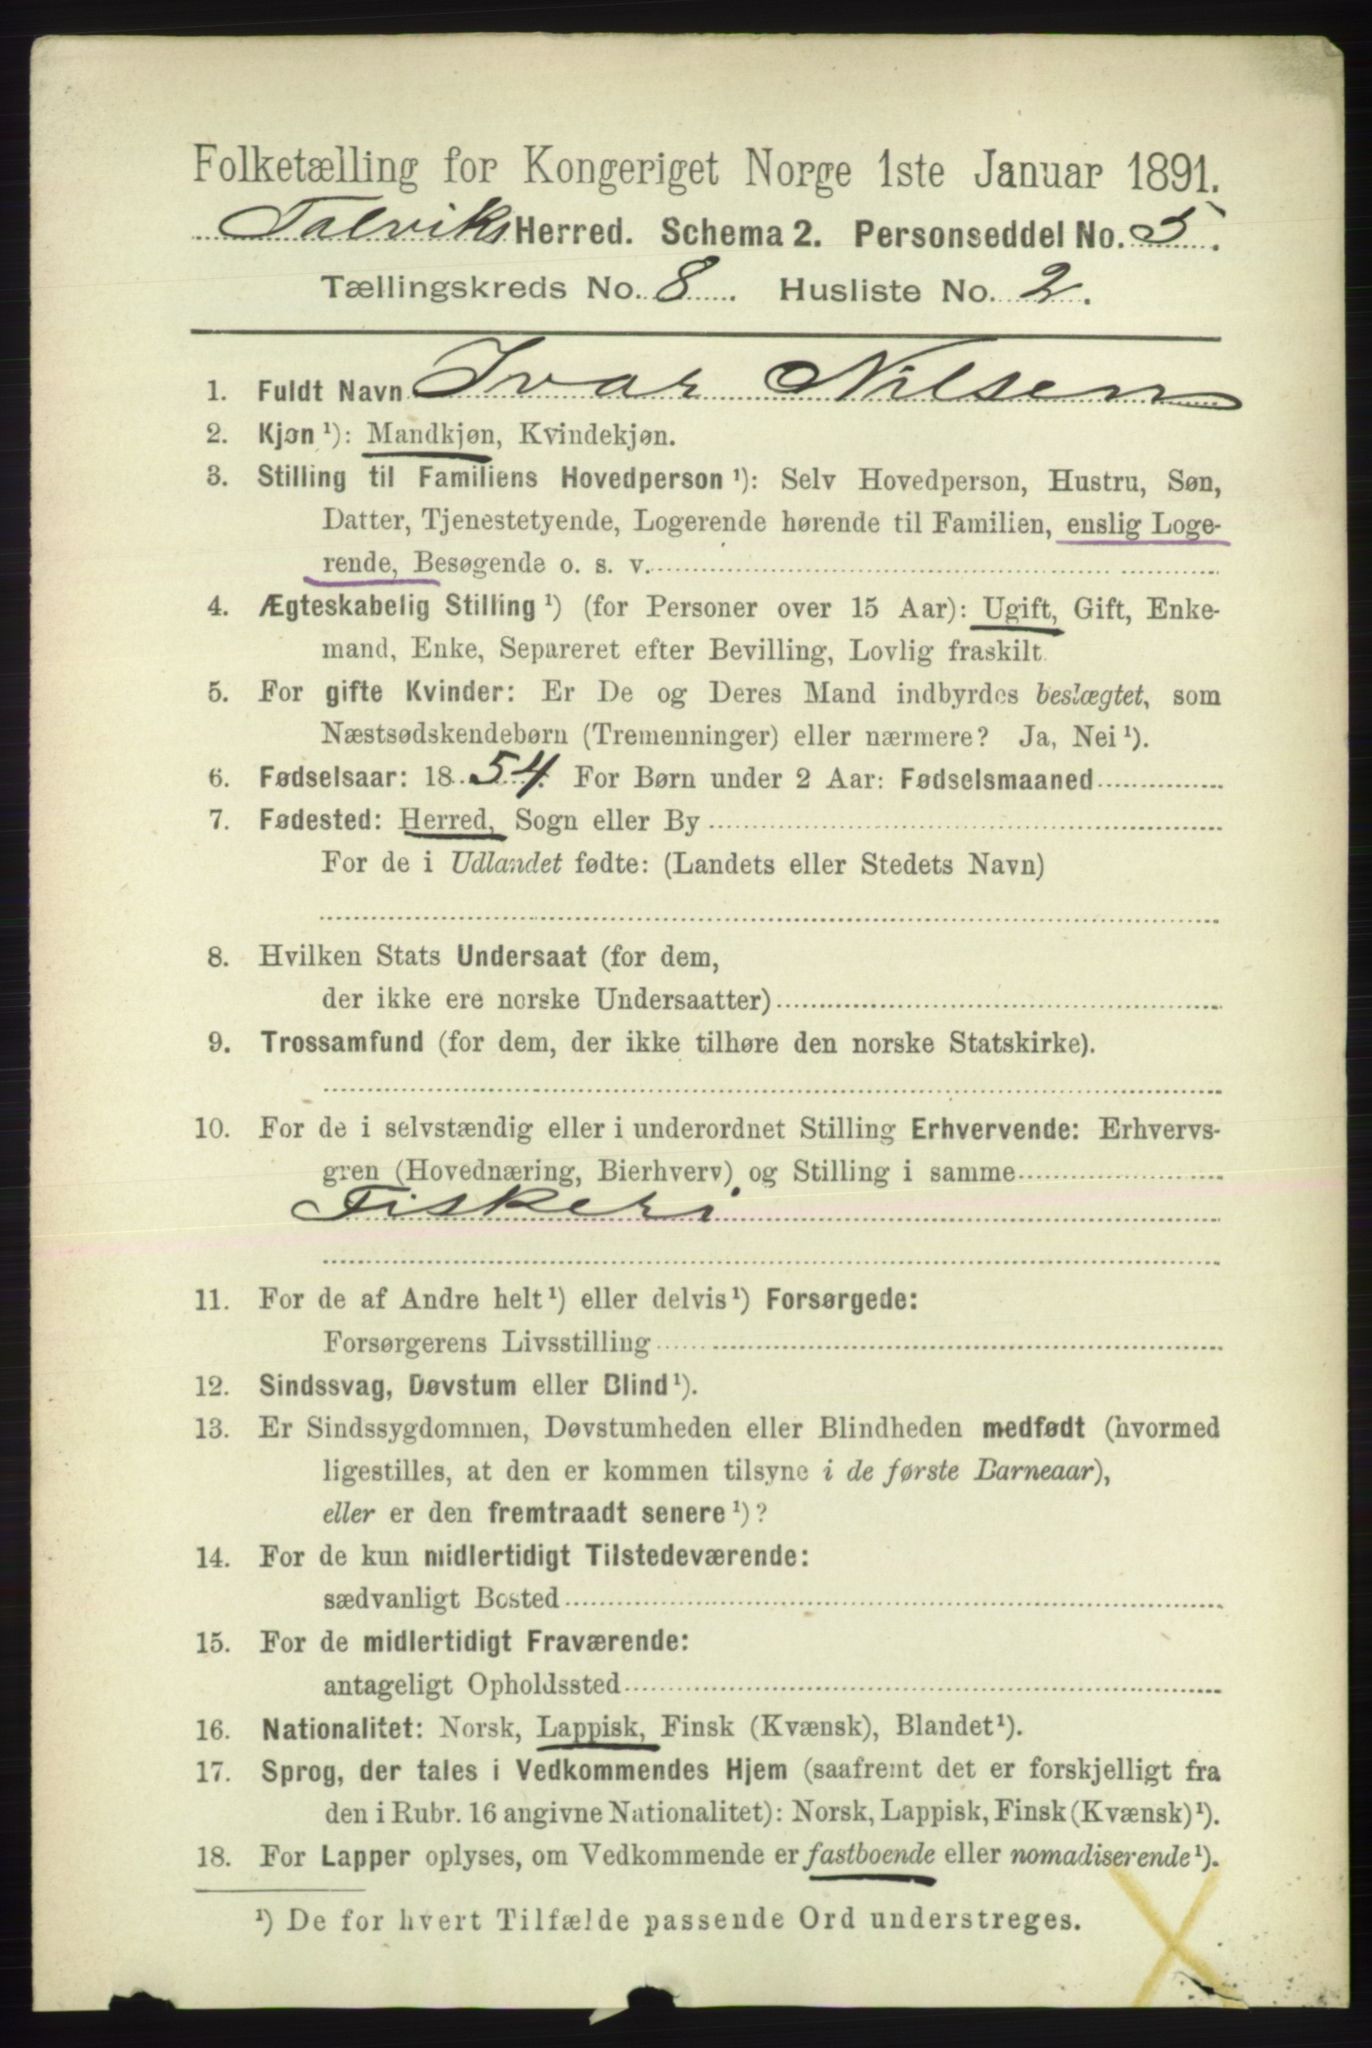 Folketælling for Kongeriget Norge 1ste Januar 1891.
Talviks Herred. Schema 2. Personseddel No. 5.
Tællingskreds No. 8. Husliste No. 2.
1. Fuldt Navn Ivar Nilsen
2. Kjøn ¹): Mandkjøn, Kvindekjøn.
3. Stilling til Familiens Hovedperson ¹): Selv Hovedperson, Hustru, Søn,
Datter, Tjenestetyende, Logerende hørende til Familien, enslig Loge-
rende, Besøgende o. s. v.
4. Ægteskabelig Stilling ¹) (for Personer over 15 Aar): Ugift, Gift, Enke-
mand, Enke, Separeret efter Bevilling, Lovlig fraskilt
5. For gifte Kvinder: Er De og Deres Mand indbyrdes beslægtet, som
Næstsødskendebørn (Tremenninger) eller nærmere? Ja, Nei ¹).
6. Fødselsaar: 1854. For Børn under 2 Aar: Fødselsmaaned
7. Fødested: Herred, Sogn eller By
For de i Udlandet fødte: (Landets eller Stedets Navn)
8. Hvilken Stats Undersaat (for dem,
der ikke ere norske Undersaatter)
9. Trossamfund (for dem, der ikke tilhøre den norske Statskirke).
10. For de i selvstændig eller i underordnet Stilling Erhvervende: Erhvervs-
gren (Hovednæring, Bierhverv) og Stilling i samme
Fiskeri
11. For de af Andre helt ¹) eller delvis ¹) Forsørgede:
Forsørgerens Livsstilling
12. Sindssvag, Døvstum eller Blind ¹).
13. Er Sindssygdommen, Døvstumheden eller Blindheden medfødt (hvormed
ligestilles, at den er kommen tilsyne i de første Barneaar),
eller er den fremtraadt senere ¹)?
14. For de kun midlertidigt Tilstedeværende:
sædvanligt Bosted
15. For de midlertidigt Fraværende:
antageligt Opholdssted
16. Nationalitet: Norsk, Lappisk, Finsk (Kvænsk), Blandet ¹).
17. Sprog, der tales i Vedkommendes Hjem (saafremt det er forskjelligt fra
den i Rubr. 16 angivne Nationalitet): Norsk, Lappisk, Finsk (Kvænsk) ¹).
18. For Lapper oplyses, om Vedkommende er fastboende eller nomadiserende ¹).
¹) De for hvert Tilfælde passende Ord understreges.